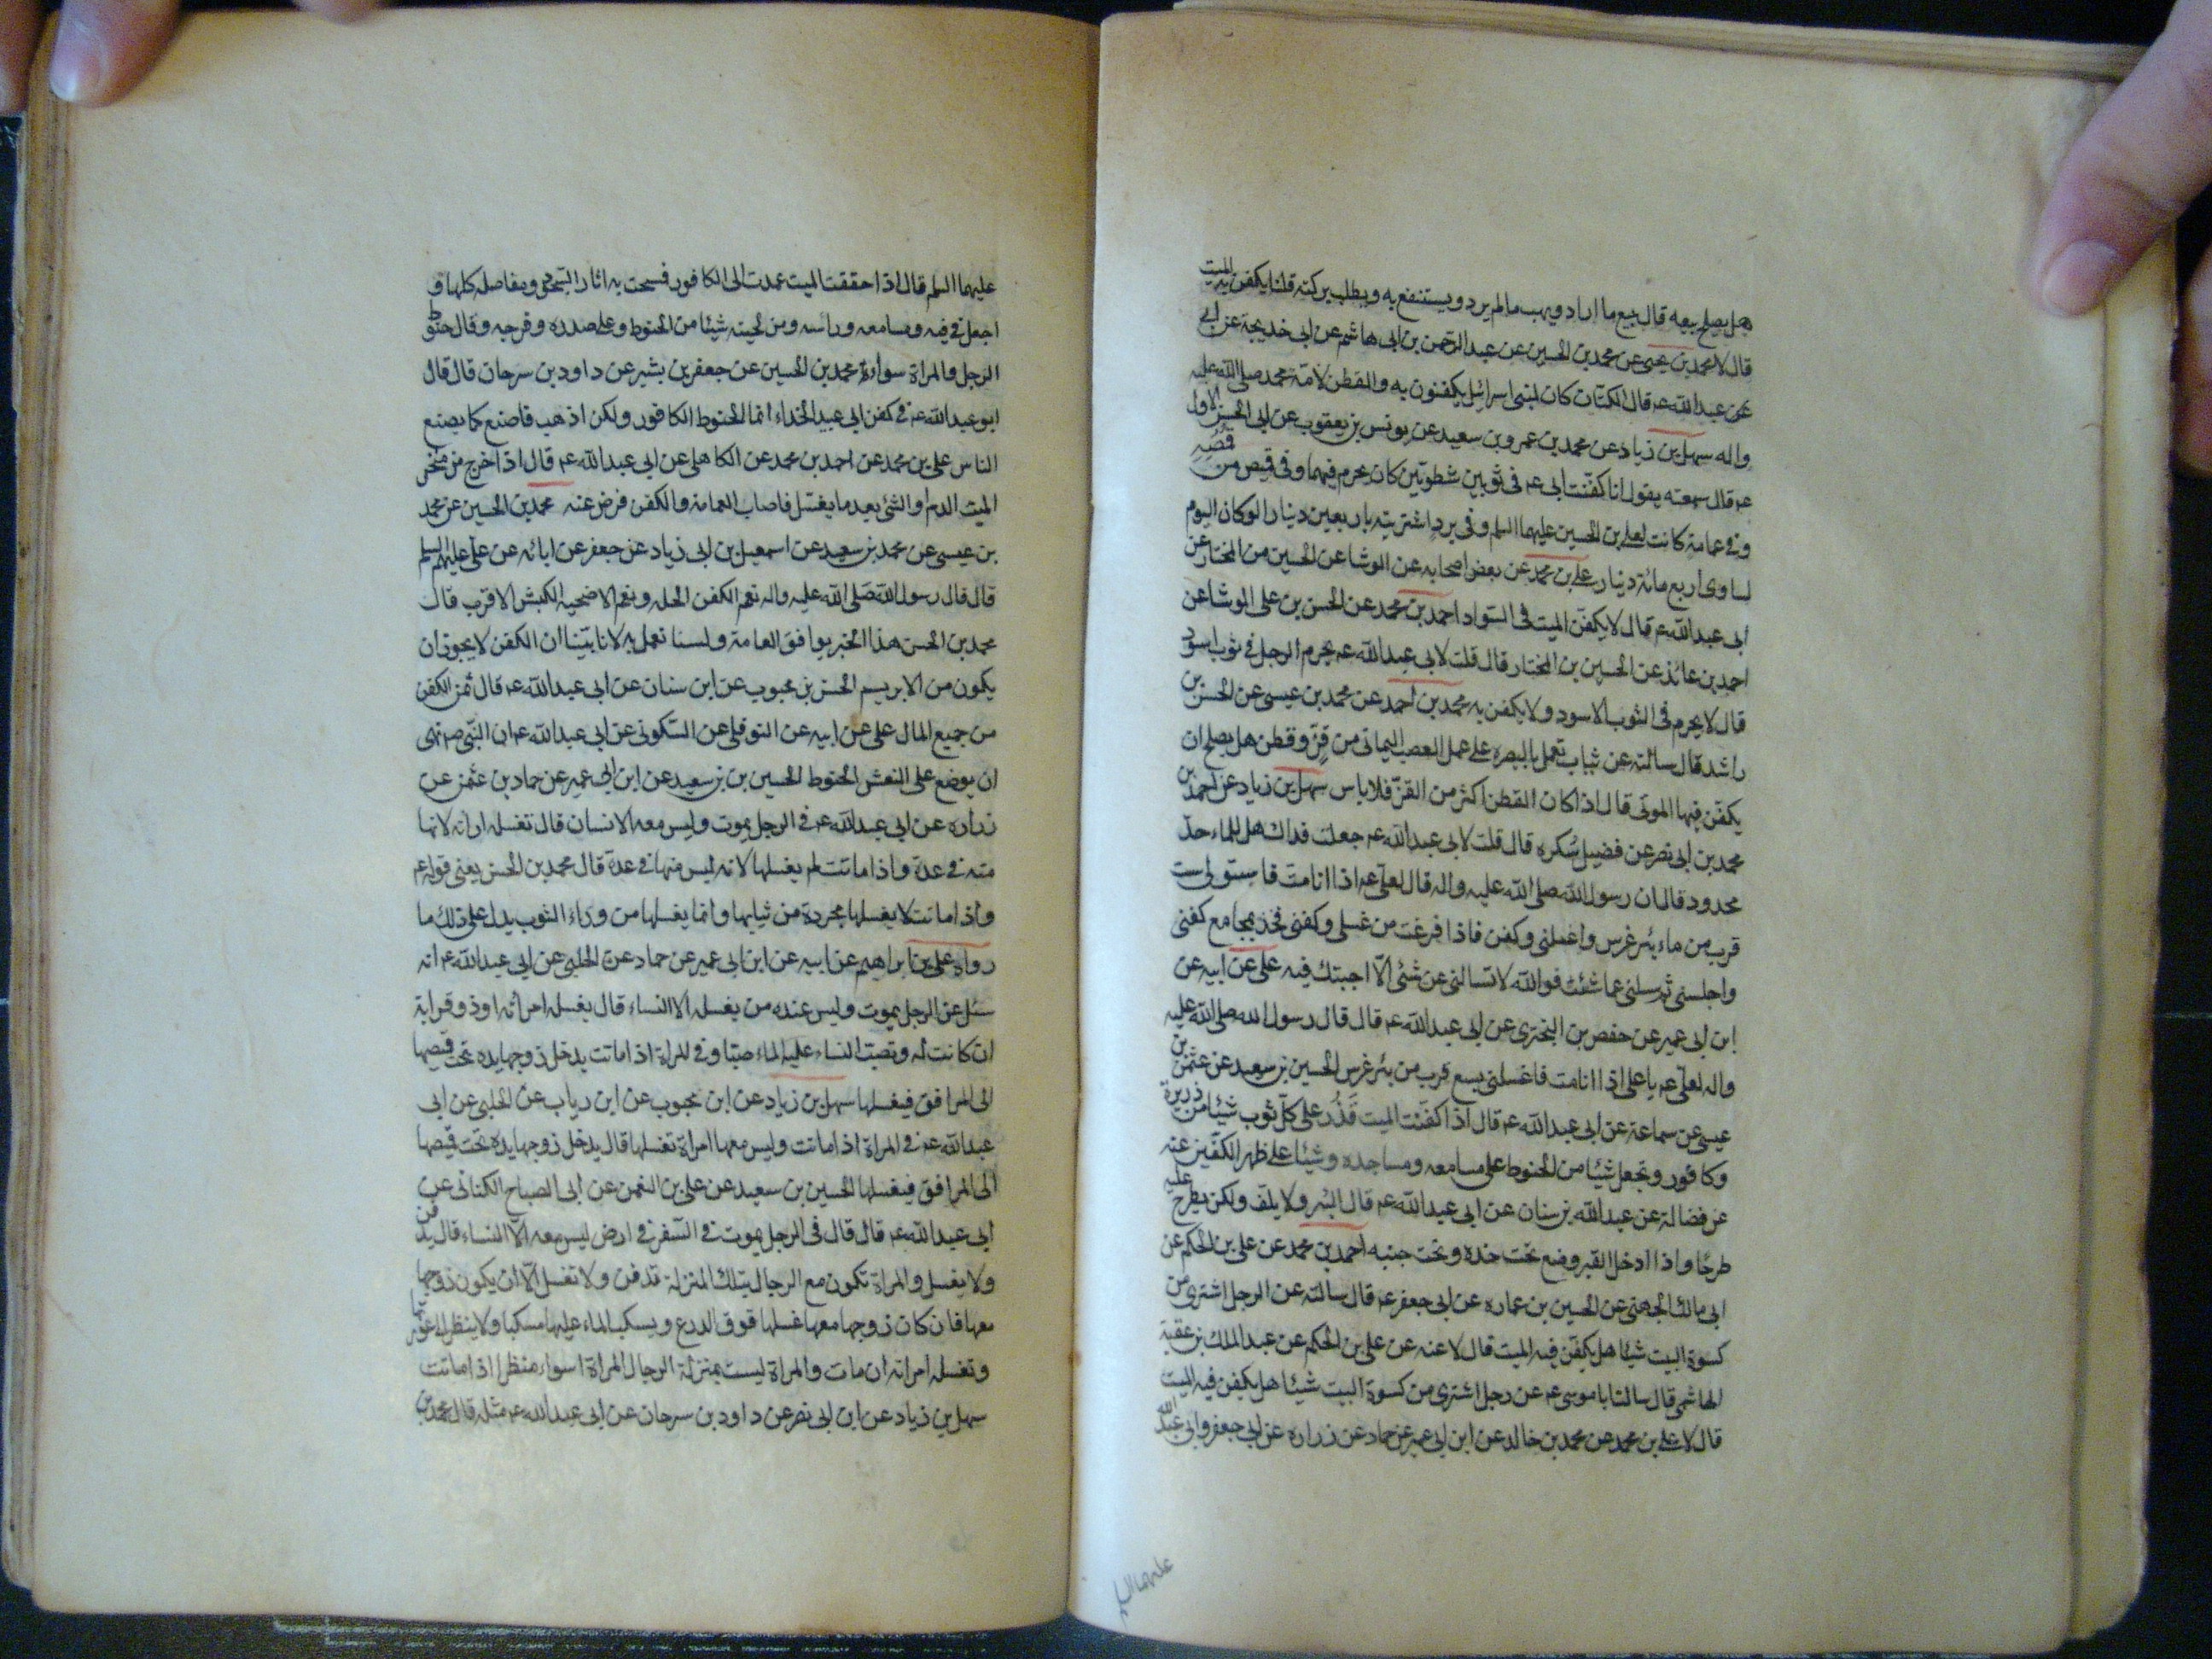 هل يصلح بيعه قال يبيع ما اراد ويهب ما لم يرد ويستنفع به ويطلب بركته قلنا ايكفن به الميت
قال لا محمد بن يحيى عن محمد بن الحسين عن عبد الرحمن بن ابى هاشم عن ابى خديجة عن ابى
عن عبد الله عه قال الكتان كان لبنى اسرائيل يكفنون به والقطن لامة محمد صلى الله عليه
واله سهل بن زياد عن محمد بن عمرو بن سعيد عن يونس بن يعقوب عن ابى الحسن الاول
عه قال سمعته يقول انا كفّنت ابى عه فى ثوبين شطويّين كان يحرم فيهما وفى قميص من قُمُصِهِ
وفى عمامة كانت لعلى بن الحسين عليهما السلم وفى برد اشتريته باربعين دينارا لو كان اليوم
لساوى اربع مائة دينار على بن محمد عن بعض اصحابه عن الوشا عن الحسين من المختار عن
ابى عبد الله عه قال لا يكفن الميت فى السواد احمد بن محمد عن الحسن بن على الوشا عن
احمد بن عائذ عن الحسين بن المختار قال قلت لابى عبد الله عه يحرم الرجل فى ثوب اسود
قال لا يحرم فى الثوب الاسود ولا يكفن به محمد بن احمد عن محمد بن عيسى عن الحسن بن
راشد قال سالته عن ثياب تعمل بالبصره على عمل العصب اليمانى من قزّ وقطن هل يصلح ان
يكفّن فيها الموتى قال اذا كان القطن اكثر من القزّ فلا باس سهل بن زياد عن احمد بن
محمد بن ابى نصر عن فضيل سُكره قال قلت لابى عبد الله عه جعلت فداك هل للماء حدّ
محدود قال ان رسول الله صلى الله عليه واله قال لعلى عه اذا انا مت فاستو لى ست
قرب من ماء بئر غرس واغسلنى وكفن فاذا فرغت من غسلى وكفنى فخذ بمجامع كفنى
واجلسنى ثم سلنى عما شئت فوالله لا تسالنى عن شئ الّا اجبتك فيه على عن ابيه عن
ابن ابى عمير عن حفص بن البخترى عن ابى عبد الله عه قال قال رسول الله صلى الله عليه
واله لعلى عه يا على اذا انا مت فاغسلنى بسبع قرب من بئر غرس الحسين بن سعيد عن عثمن بن
عيسى عن سماعة عن ابى عبد الله عه قال اذا كفّنت الميت فَذُر على كلّ ثوب شيئا من ذريرة
وكافور وتجعل شيئا من الحنوط على مسامعه ومساجده وشيئا على ظهر الكفّين عنه
عن فضالة عن عبد الله بن سنان عن ابى عبد الله عه قال البُرد لا يلفّ ولكن يطرح عليه
طرحًا واذا ادخل القبر وضع تحت خده وتحت جنبه احمد بن محمد عن على بن الحكم عن
ابى مالك الجهنى عن الحسين بن عماره عن ابى جعفر عه قال سالته عن الرجل اشترى من
كسوة البيت شيئا هل يكفّن فيه الميت قال لا عنه عن على بن الحكم عن عبد الملك بن عقبة
الهاشمى قال سالت ابا موسى عه عن رجل اشترى من كسوة البيت شيئا هل يكفن فيه الميت
قال لا على بن محمد عن محمد بن خالد عن ابن ابى عمير عن حماد عن زراره عن ابى جعفر وابى عبد الله
عليهما السلم
عليهما السلم قال اذا حققت الميت عمدت الى الكافور فمسحت به اثار السجود ومفاصله كلها و
اجعل فى فيه ومسامعه وراسه ومن لحيته شيئا من الحنوط وعلى صدره وفرجه وقال حنوط
الرجل والمراة سواء محمد بن الحسين عن جعفر بن بشير عن داود بن سرحان قال قال
ابو عبد الله عه فى كفن ابى عبيد الحذاء انما الحنوط الكافور ولكن اذهب فاصنع كما يصنع
الناس على بن محمد عن احمد بن محمد عن الكاهلى عن ابى عبد الله عه قال اذا خرج من منخر
الميت الدم او الشئ بعد ما يغسل فاصاب العمامة والكفن قرض عنه محمد بن الحسين عن محمد
بن عيسى عن محمد بن سعيد عن اسمعيل بن ابى زياد عن جعفر عن ابائه عن على عليهم السلم
قال قال رسول الله صلى الله عليه واله نعم الكفن الحله ونعم الاضحيه الكبش الاقرب قال
محمد بن الحسن هذا الخبر يوافق العامة ولسنا نعمل به لانا بيّنا ان الكفن لا يجوز ان
يكون من الابريسم الحسن بن محبوب عن ابن سنان عن ابى عبد الله عه قال ثمن الكفن
من جميع المال على عن ابيه عن النوفلى عن السكونى عن ابى عبد الله عه ان النبى صه نهى
ان يوضع على النعش الحنوط الحسين بن بن سعيد عن ابن ابى عمير عن حماد بن عثمن عن
زراره عن ابى عبد الله عه فى الرجل يموت وليس معه الا نسان قال تغسله امراته لانها
منه فى عدة واذا ماتت لم يغسلها لانه ليس منها فى عدة قال محمد بن الحسن يعنى قوله عه
واذا ماتت لا يغسلها مجردة من ثيابها وانما يغسلها من وراء الثوب يدل على ذلك ما
رواه على بن ابراهيم عن ابيه عن ابن ابى عمير عن حماد عن الحلبى عن ابى عبد الله عه انه
سئل عن الرجل يموت وليس عنده من يغسله الا النساء قال يغسله امراته او ذو قرابة
ان كانت له وتصبّ النساء عليه الماء صبّا وفى المراة اذا ماتت يدخل زوجها يده تحت قميصها
الى المرافق فيغسلها سهل بن زياد عن ابن محبوب عن ابن رياب عن الحلبى عن ابى
عبد الله عه فى المراة اذا ماتت وليس معها امراة تغسلها قال يدخل زوجها يده تحت قميصها
الى المرافق فيغسلها الحسين بن سعيد عن على بن النعمن عن ابى الصباح الكنانى عن
ابى عبد الله عه قال قال فى الرجل يموت فى السفر فى ارض ليس معه الّا النساء قال يدفن
ولا يغسل والمراة تكون مع الرجال بتلك المنزلة تدفن ولا تغسل الّا ان يكون زوجها
معها فان كان زوجها معها غسلها فوق الدرع ويسكب الماء عليها سكبا ولا ينظر الى عورتها
وتغسله امراته ان مات والمراة ليست بمنزلة الرجال المراة اسواء منظرا اذا ماتت
سهل بن زياد عن ابن ابى نصر عن داود بن سرحان عن ابى عبد الله عه مثله قال محمد بن